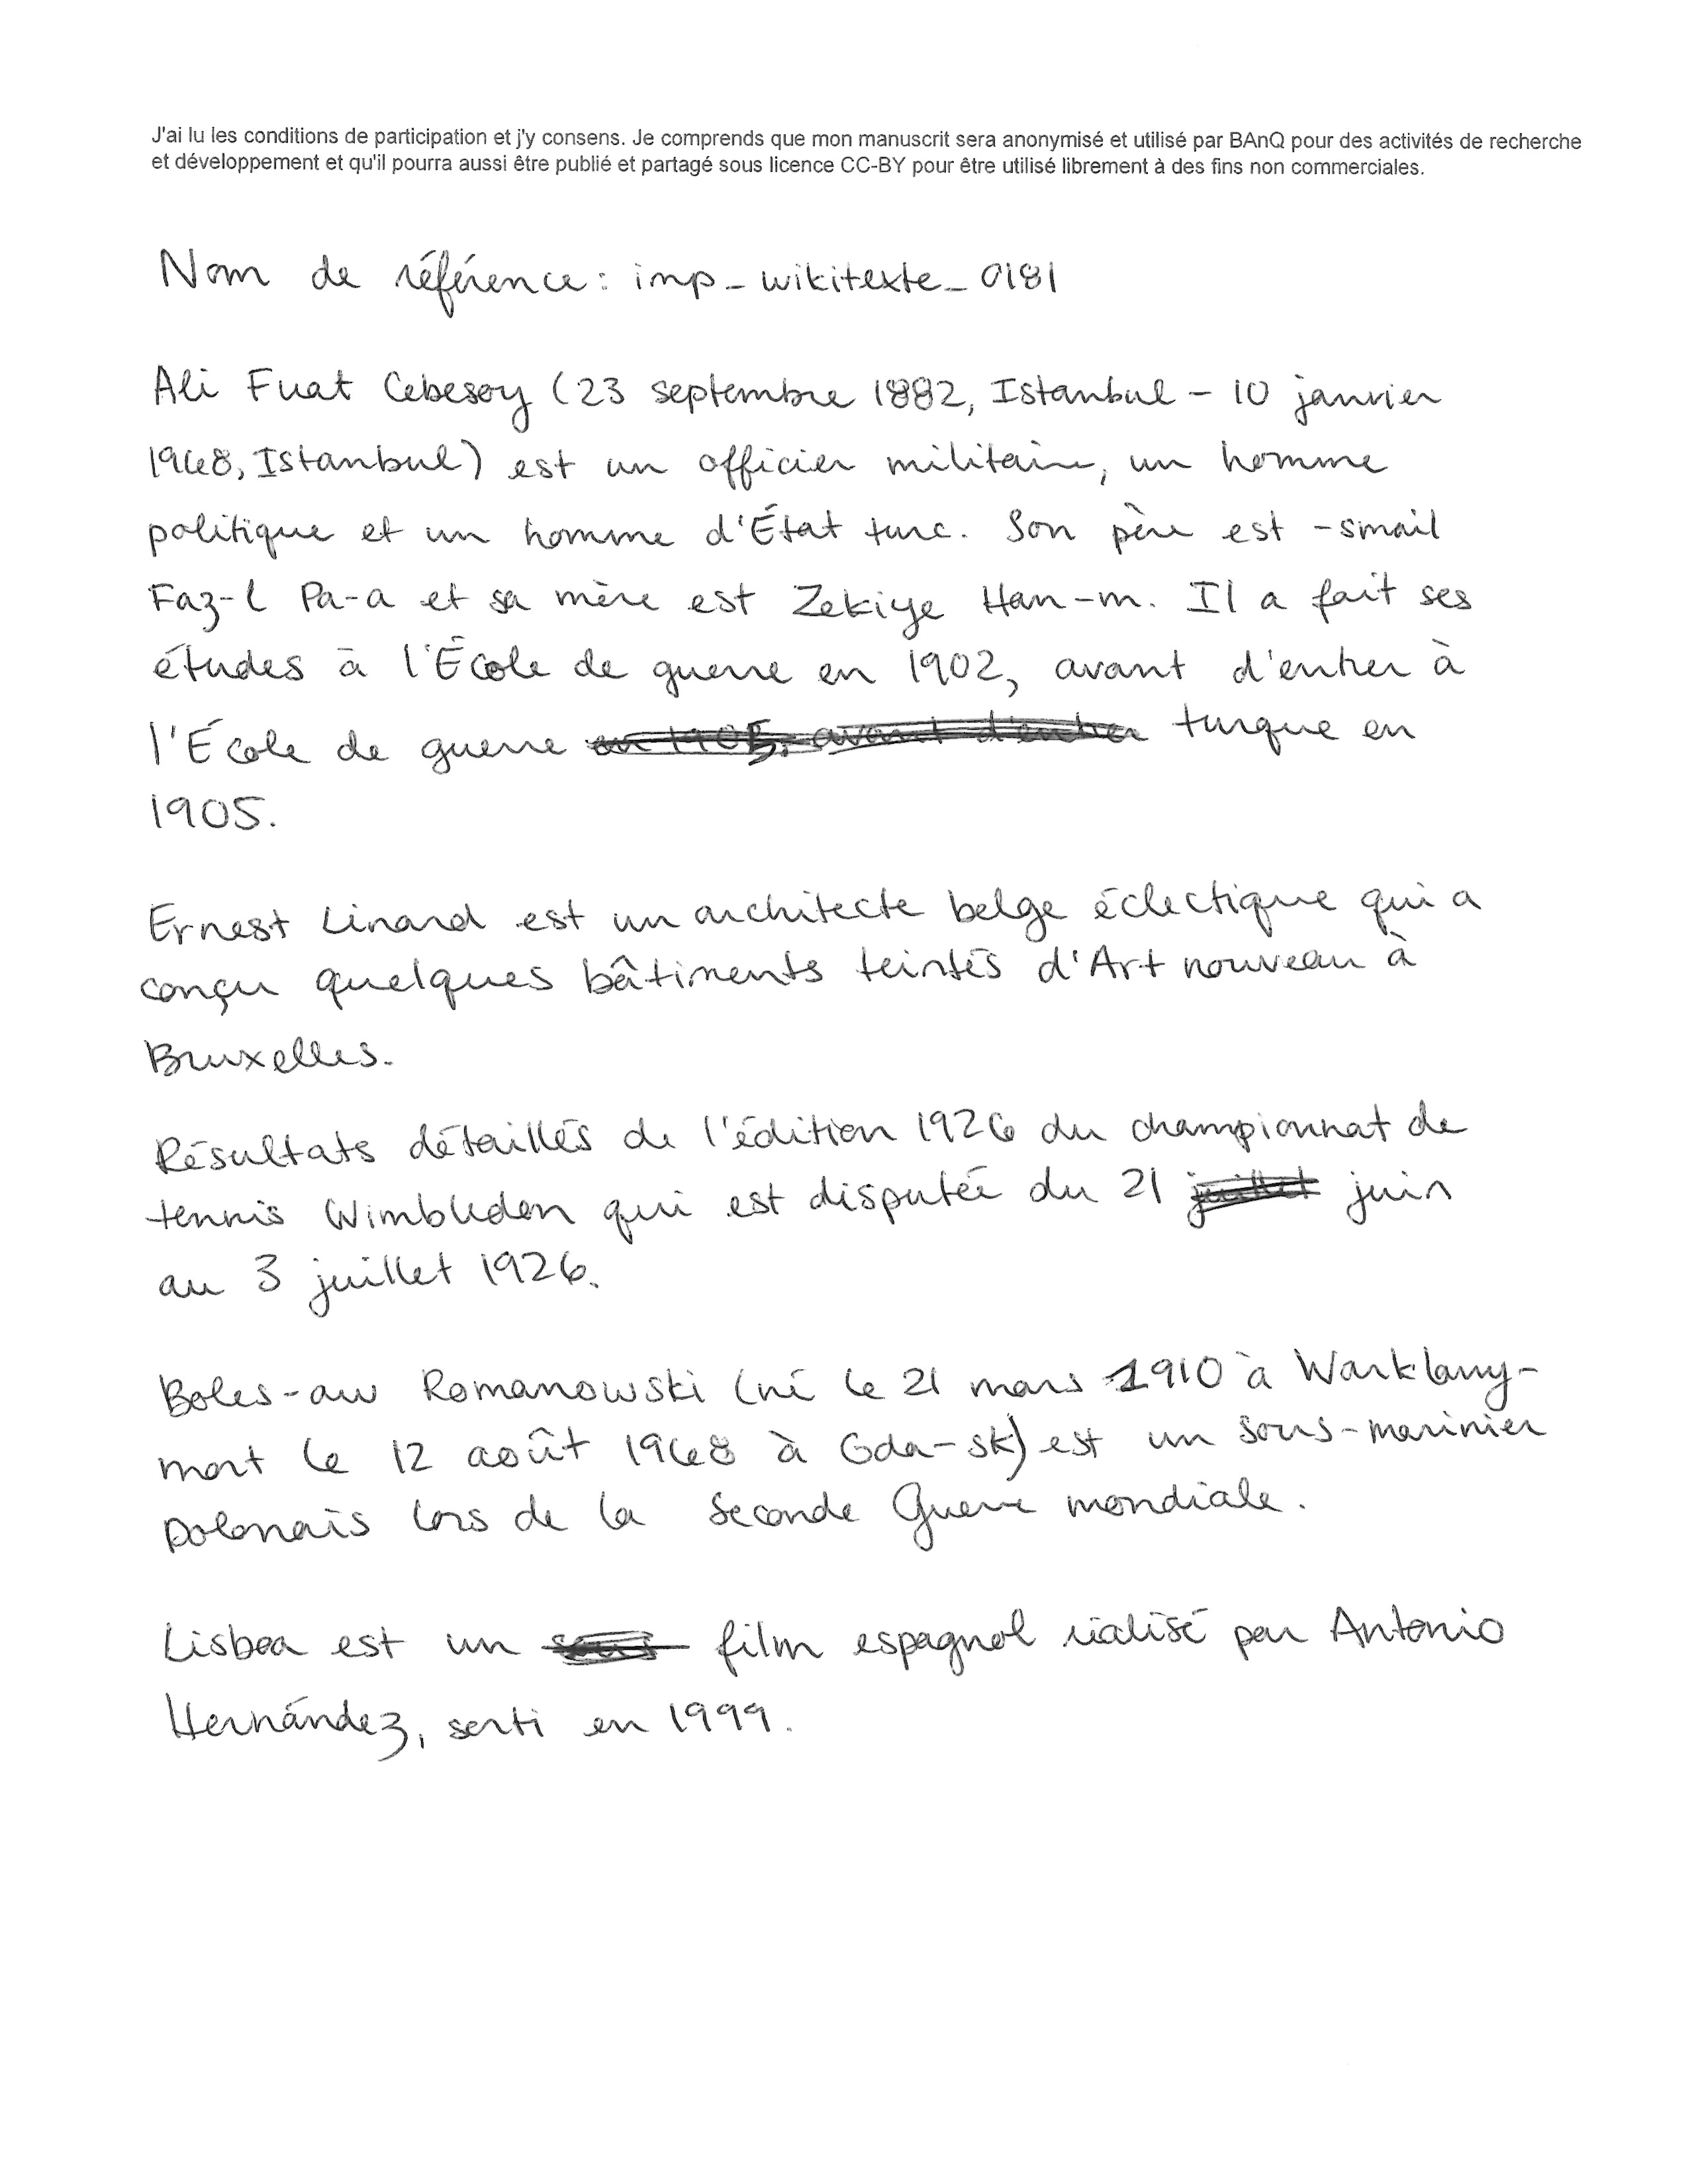 J'ai lu les conditions de participation et j'y consens. Je comprends que mon manuscrit sera anonymisé et utilisé par BAnQ pour des activités de recherche
et développement et qu'il pourra aussi être publié et partagé sous licence CC-BY pour être utilisé librement à des fins non commerciales.
Nom de référence : imp_wikitexte_0181
Ali Fuat Cebesoy (23 septembre 1882, Istanbul - 10 janvier
1968, Istanbul) est un officier militaire, un homme
politique et un homme d'État turc. Son père est -smail
Faz-l Pa-a et sa mère est Zekiye Han-m. Il a fait ses
études à l'École de guerre en 1902, avant d'entrer à
l'École de guerre en 1905, avant d'entrer turque en
1905.
Ernest Linard est un architecte belge éclectique qui a
conçu quelques bâtiments teintés d'Art nouveau à
Bruxelles.
Résultats détaillés de l'édition 1926 du championnat de
tennis Wimbledon qui est disputée du 21 juillet juin
au 3 juillet 1926.
Boles-aw Romanowski (né le 21 mars 1910 à Warklany-
mort le 12 août 1968 à Gda-sk) est un sous-marinier
polonais lors de la Seconde Guerre mondiale.
Lisboa est un film espagnol réalisé par Antonio
Hernández, sorti en 1999.